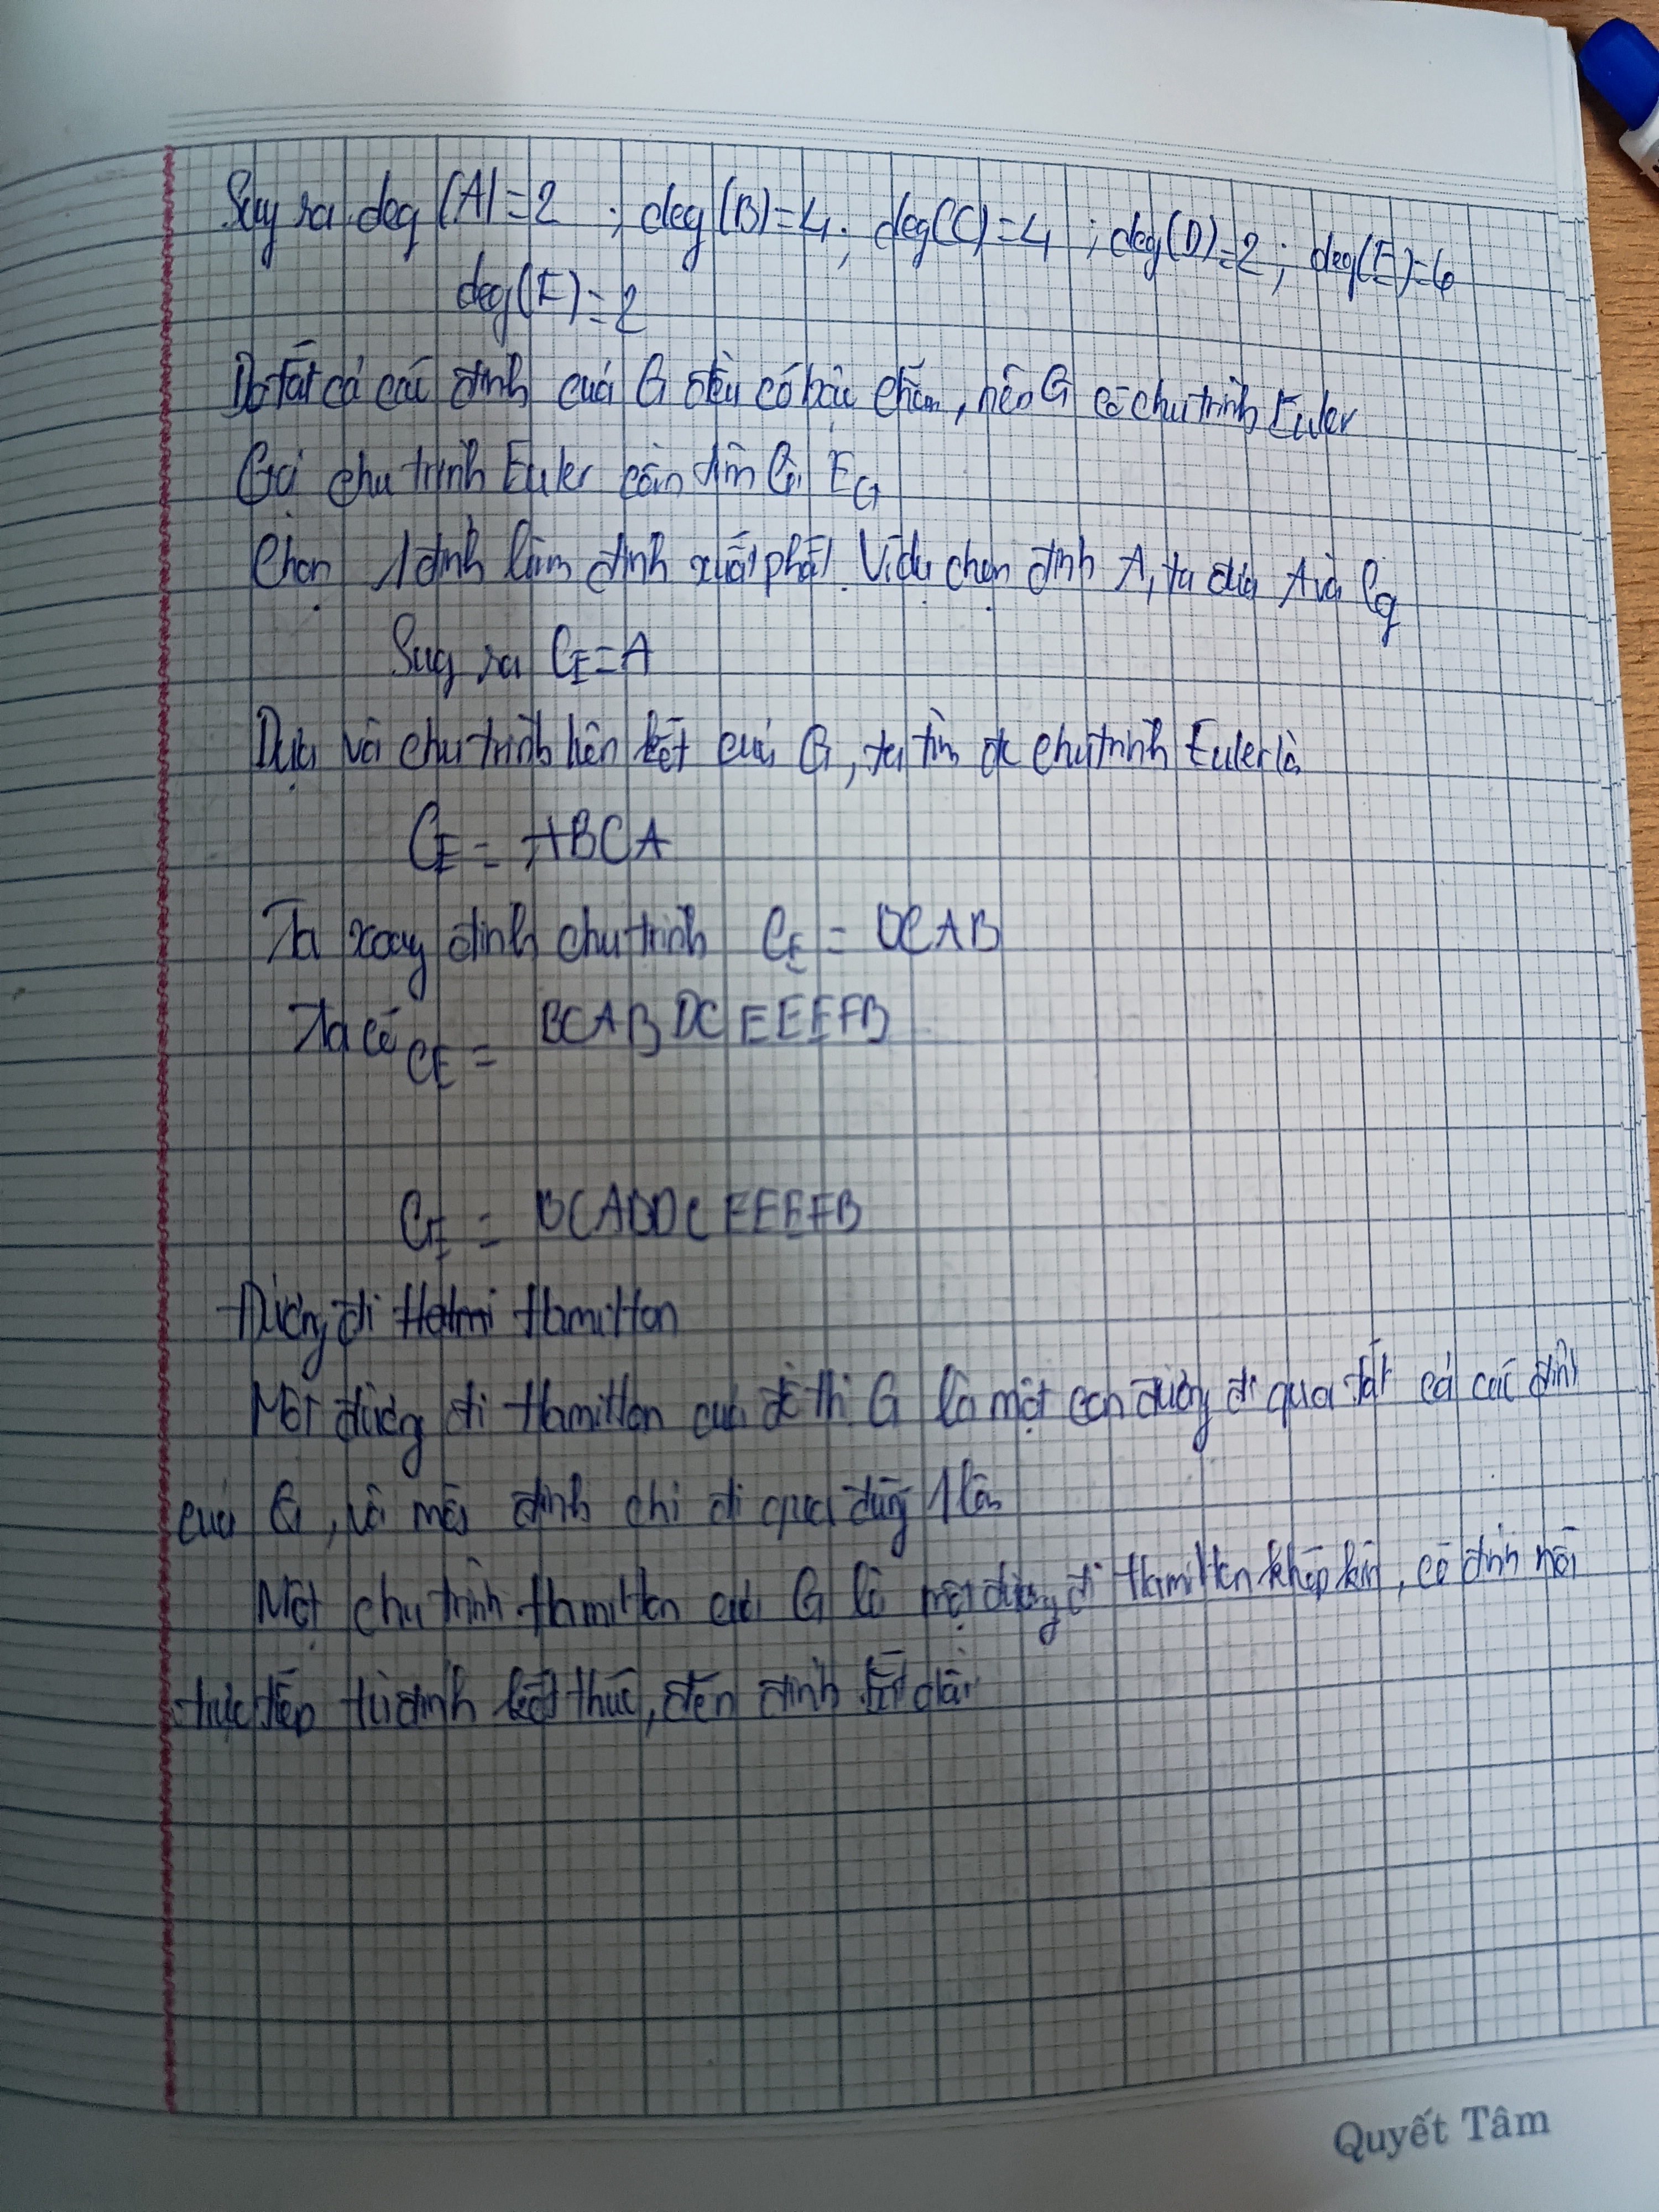 Suy ra deg (A) = 2 ; deg (B) = 4 ; deg(C) = 4 ; deg(D) = 2 ; deg(E) = 6
deg(F) = 2
Do tất cả các đỉnh của G đều có bậc chẵn, nên G có chu trình Euler
Gọi chu trình Euler cần tìm là EG
Chọn 1 đỉnh làm đỉnh xuất phát. Ví dụ chọn đỉnh A, ta đưa A vào
Suy ra CE = A
Dựa vào chu trình liên kết của G, ta tìm đc chu trình Euler là
CE = ABCA
Ta xoay đỉnh chu trình CE = BCAB
Ta có CE = BCABDCEEEFB
CE = BCABDCEEEFB
Đường đi Hamilton
Một đường đi Hamilton của đồ thị G là một con đường đi qua tất cả các đỉnh
của G, và mỗi đỉnh chỉ đi qua đúng 1 lần
Một chu trình Hamilton của G là một đường đi Hamilton khép kín, có đỉnh nối
trực tiếp từ đỉnh kết thúc, đến đỉnh bắt đầu
Quyết Tâm